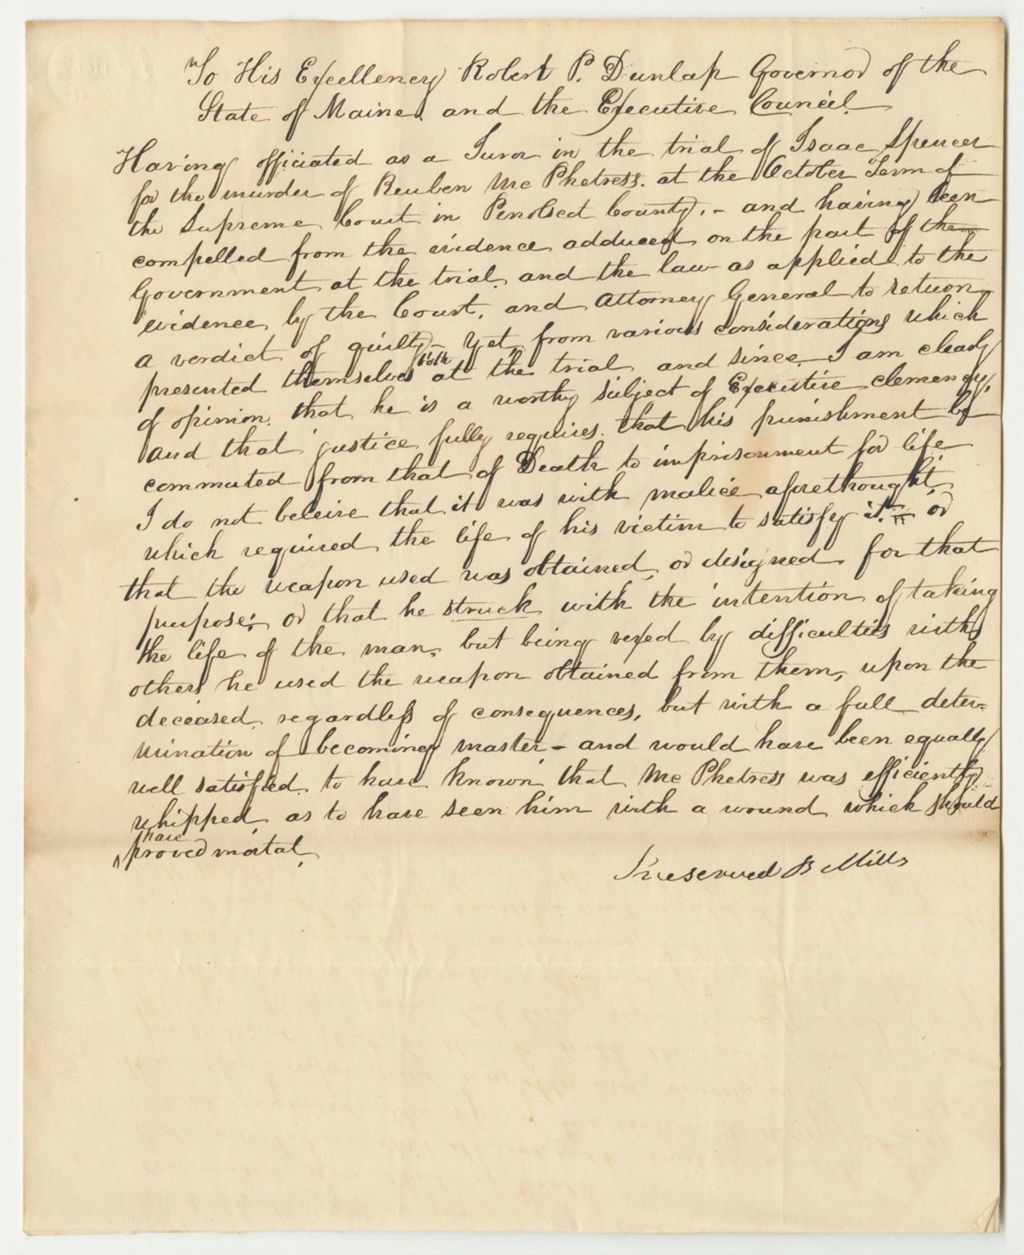 To His Excellency Robert P. Dunlap Governor of the
State of Maine and the Executive Council
Having officiated as a Juror in the trial of Isaac Spencer
for the murder of Reuben McPhetress. at the October Term of
the Supreme Court in Penobscot County. - and having been
compelled from the evidence adduced on the part of the
Government at the trial, and the law as applied to the
evidence by the Court, and Attorney General to return
a verdict of guilty - Yet from various considerations which
presented themselves both at the trial and since I am clearly
of opinion that he is a worthy subject of Executive clemency,
and that justice fully requires that his punishment be
commuted from that of Death to imprisonment for life.
I do not beleive that it was with malice aforethought
which required the life of his victim to satisfy it. or
that the weapon used was obtained or designed for that
purpose; or that he struck with the intention of taking
the life of the man, but being vexed by difficulties with
others he used the weapon obtained from them, upon the
deceased regardless of consequences, but with a full deter-
mination of becoming master - and would have been equally
well satisfied to have known that McPhetress was efficiently
whipped, as to have seen him with a wound which should
have proved mortal.
Preserved B Mills